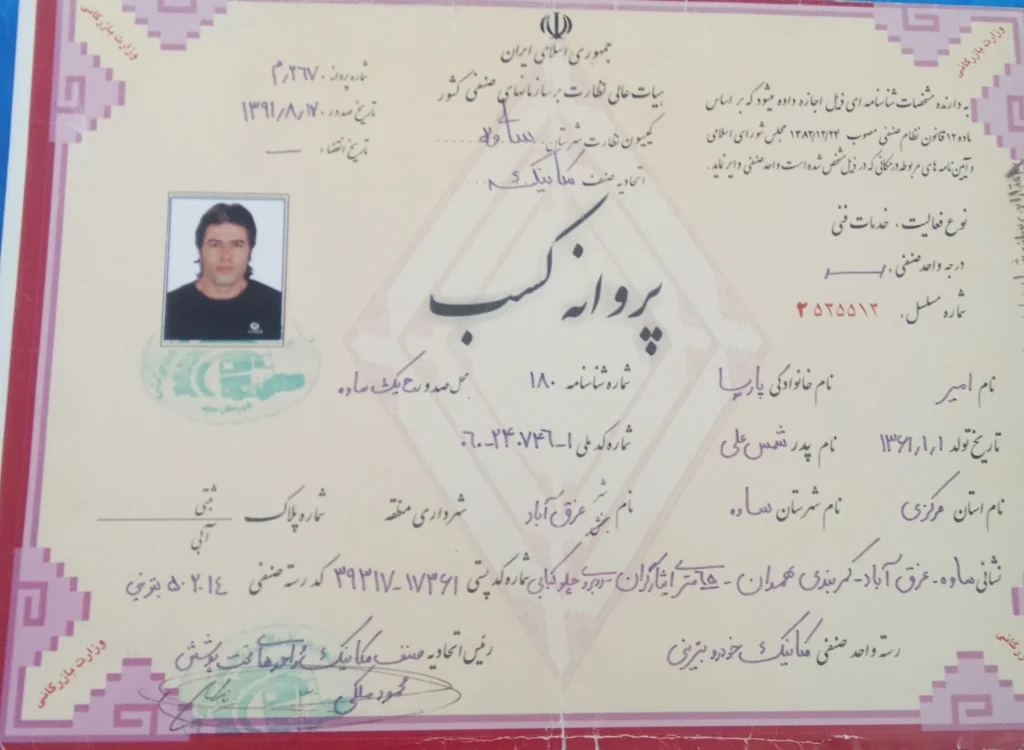 وزارت بازرگانی
وزارت بازرگانی
جمهوری اسلامی ایران
هیات عالی نظارت بر سازمانهای صنفی کشور
کمیسیون نظارت شهرستان ساوه
اتحادیه صنف مکانیک
شماره پروانه ۲۶۷۰/م
تاریخ صدور ۱۳۹۱/۸/۱۷
تاریخ انقضاء ـ
به دارنده مشخصات شناسنامه ای ذیل اجازه داده میشود که بر اساس
ماده ۱۲ قانون نظام صنفی مصوب ۱۳۸۲/۱۲/۲۴ مجلس شورای اسلامی
و آیین نامه های مربوطه در مکانی که در ذیل مشخص شده است واحد صنفی دایر نماید.
نوع فعالیت، خدمات فنی
درجه واحد صنفی،
شماره مسلسل، ۲۵۳۵۵۱۳
پروانه کسب
نام امیر نام خانوادگی پارسا شماره شناسنامه ۱۸۰ محل صدور ح یک ساوه
تاریخ تولد ۱۳۶۱/۱/۱ نام پدر شمس علی شماره کد ملی ۰۶۰-۲۴۰۷۴۶-۱
نام استان مرکزی نام شهرستان ساوه نام شهر بخش غرق آباد شهرداری منطقه شماره پلاک ثبتی آبی
نشانی ساوه - غرق آباد - کمربندی همدان - ۶۵ متری ایثارگران - روبروی چلوکبابی شماره کد پستی ۳۹۳۱۷-۱۷۳۶۱ کد رسته صنفی ۵۰۲۰۱۴ بنزینی
رسته واحد صنفی مکانیک خودرو بنزینی رئیس اتحادیه صنف مکانیک و حرفه های تحت پوشش
محمود ملکی
وزارت بازرگانی